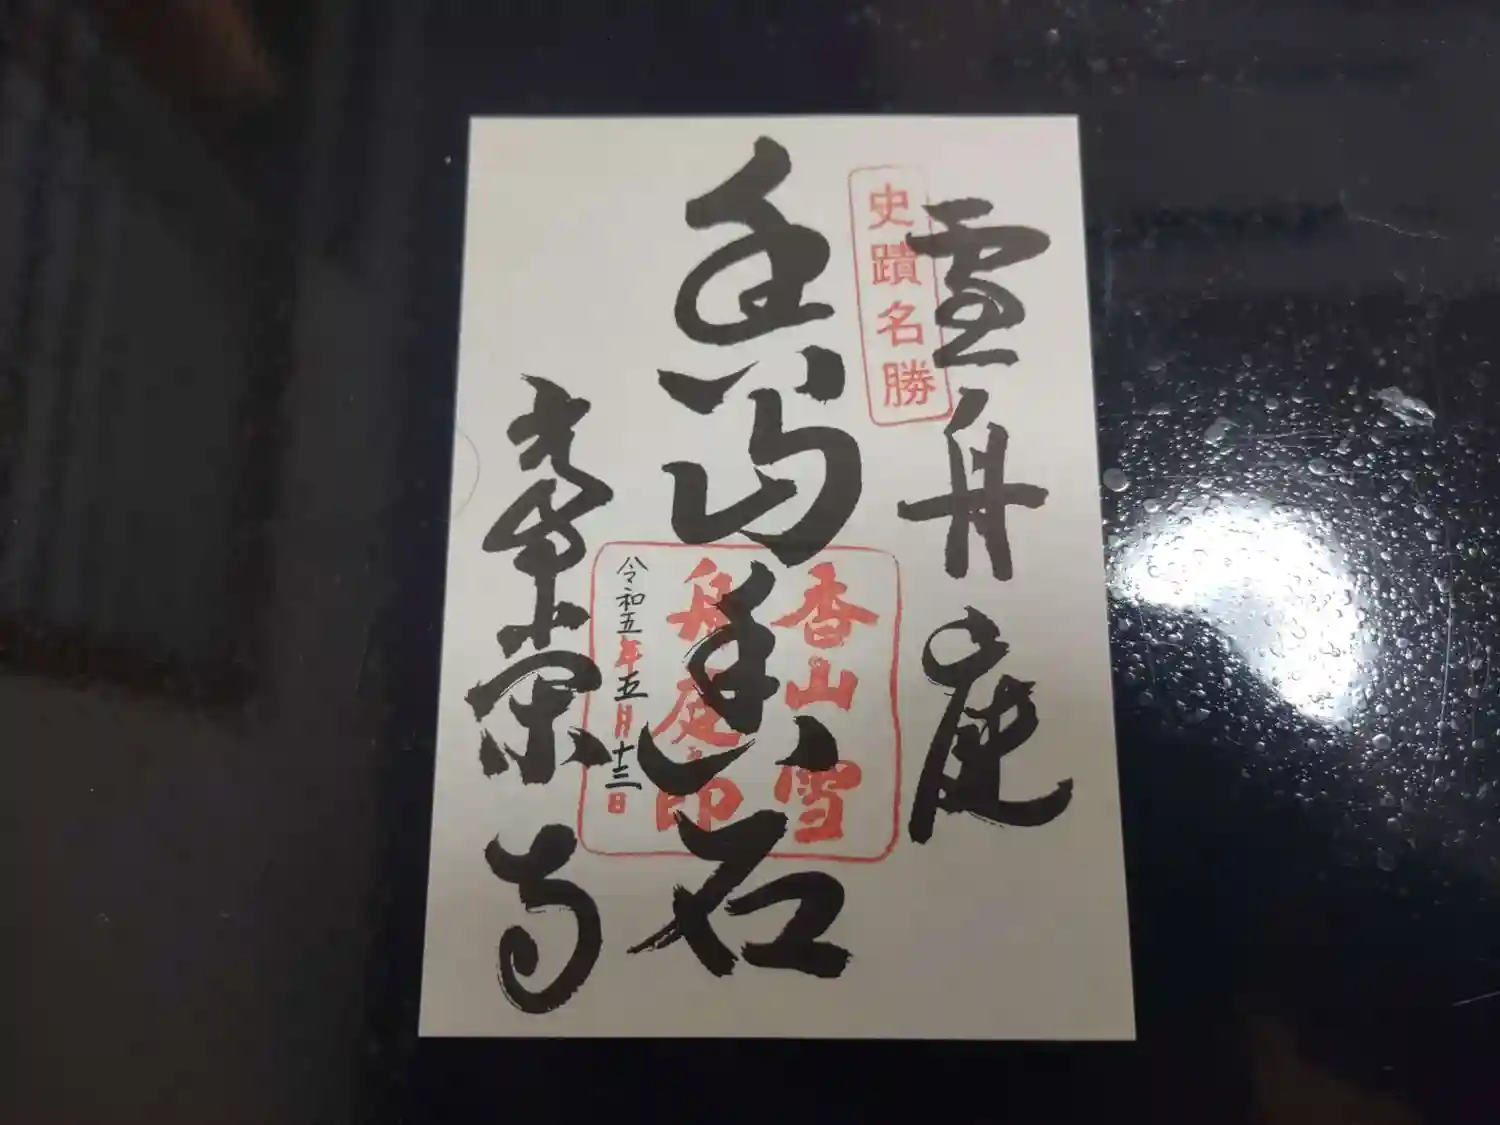 雪舟庭
史蹟名勝
香山雪
舟庭之印
令和五年五月十三日
常榮寺